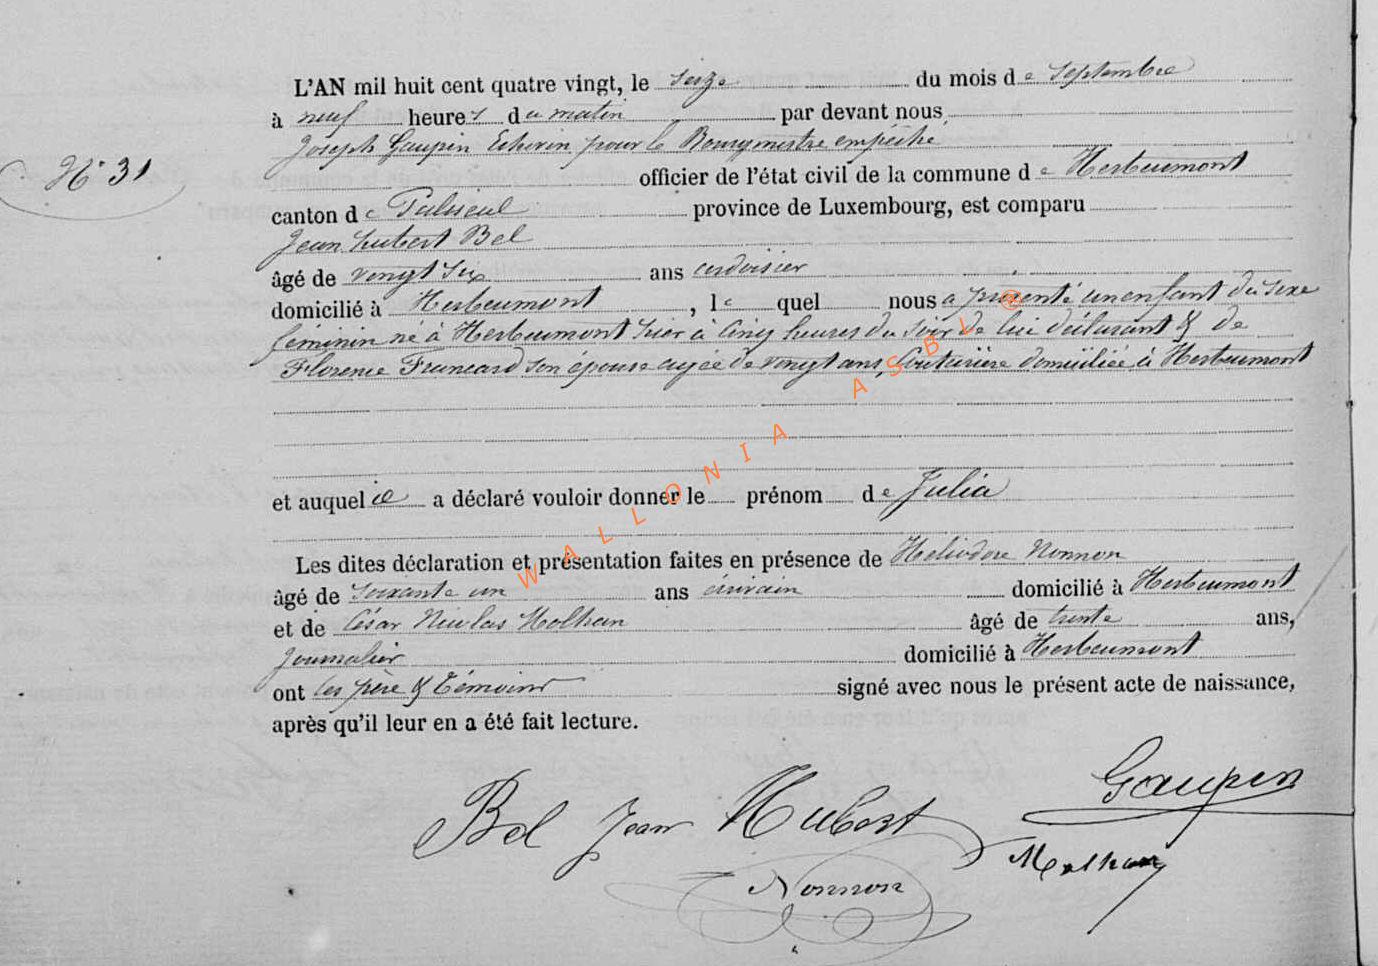 L'AN mil huit cent quatre vingt, le seize du mois de septembre
à neuf heures du matin par devant nous
Joseph Gaupin Echevin pour le Bourgmestre empêché
N° 31
officier de l'état civil de la commune de Herbeumont
canton de Paliseul province de Luxembourg, est comparu
Jean hubert Bel
âgé de vingt six ans ardoisier
domicilié à Herbeumont, le quel nous a présenté un enfant du sexe
féminin né à Herbeumont hier à cinq heures du soir de lui déclarant & de
Florence Truncard son épouse agée de vingt ans, Couturière domiciliée à Herbeumont
et auquel il a déclaré vouloir donner le prénom de Julia
Les dites déclaration et présentation faites en présence de Heliodore Nonnon
âgé de soixante un ans écrivain domicilié à Herbeumont
et de César Nicolas Molhan âgé de trente ans,
journalier domicilié à Herbeumont
ont les père & témoins signé avec nous le présent acte de naissance,
après qu'il leur en a été fait lecture.
WALLONIA ASBL ®
Gaupin
Bel Jean Hubert
Molhan
Nonnon